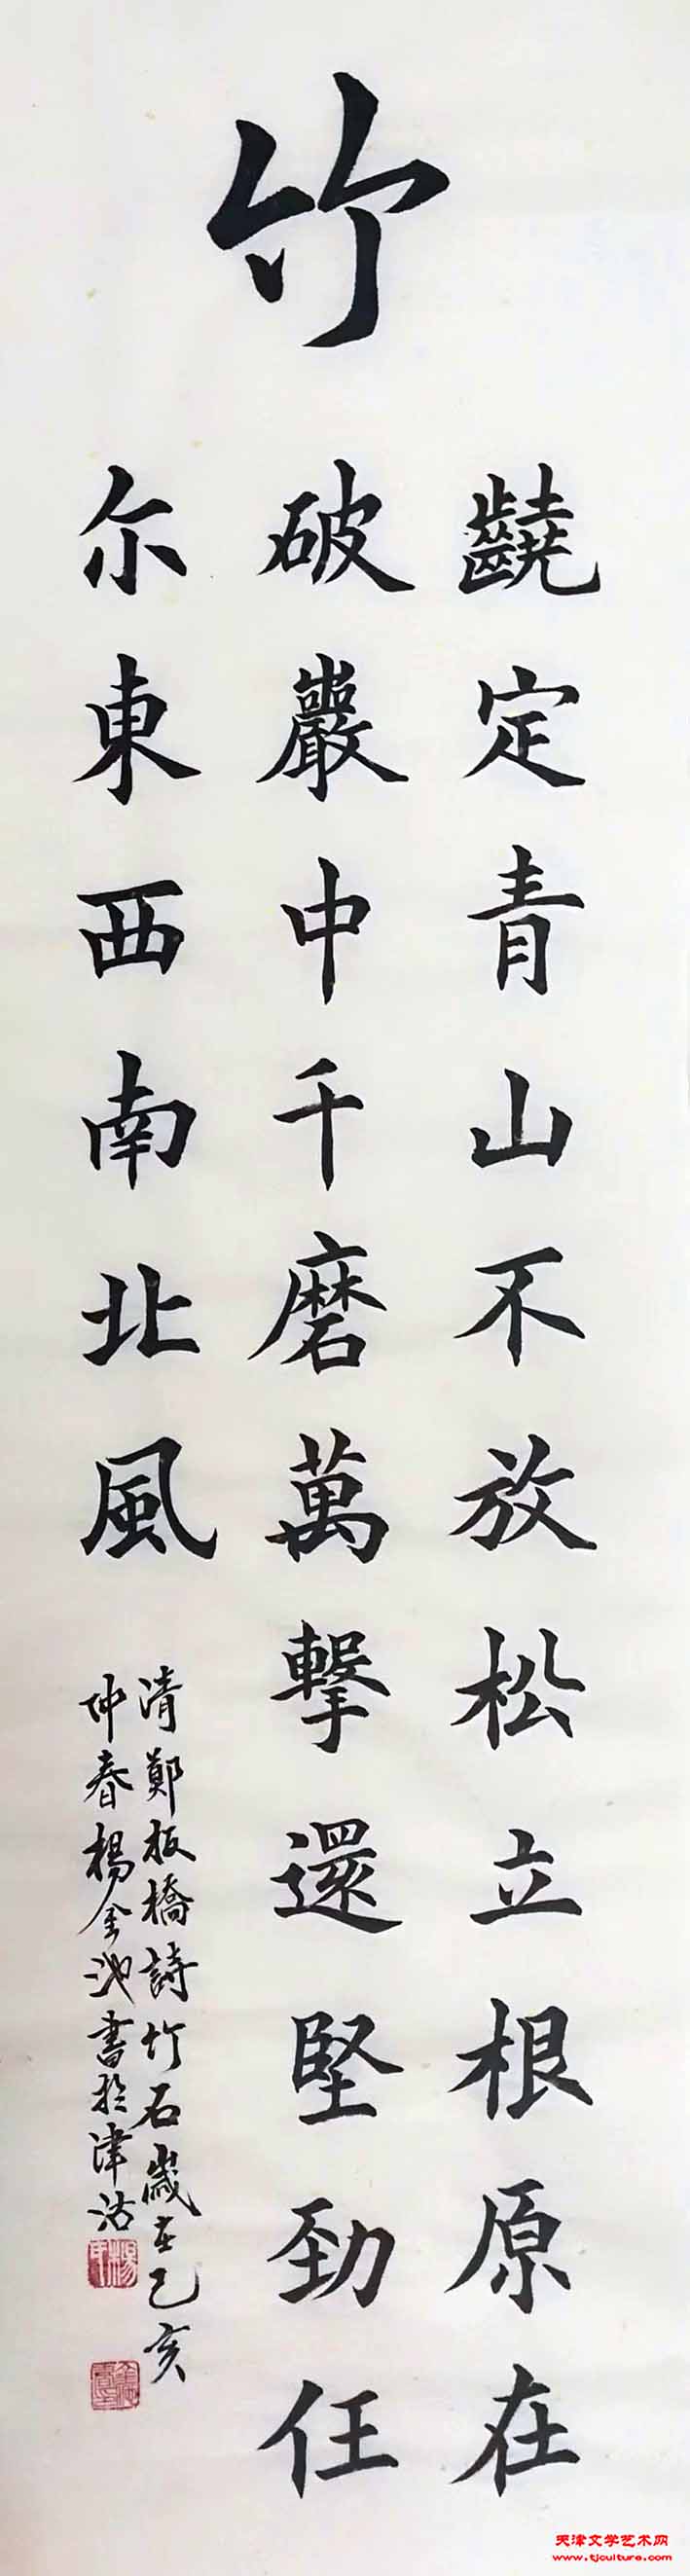 竹
齩定青山不放松立根原在
破巖中千磨萬擊還堅勁任
尓東西南北風
清鄭板橋詩竹石歲在己亥
仲春楊金池書於津沽
天津文学艺术网
www.tjculture.com